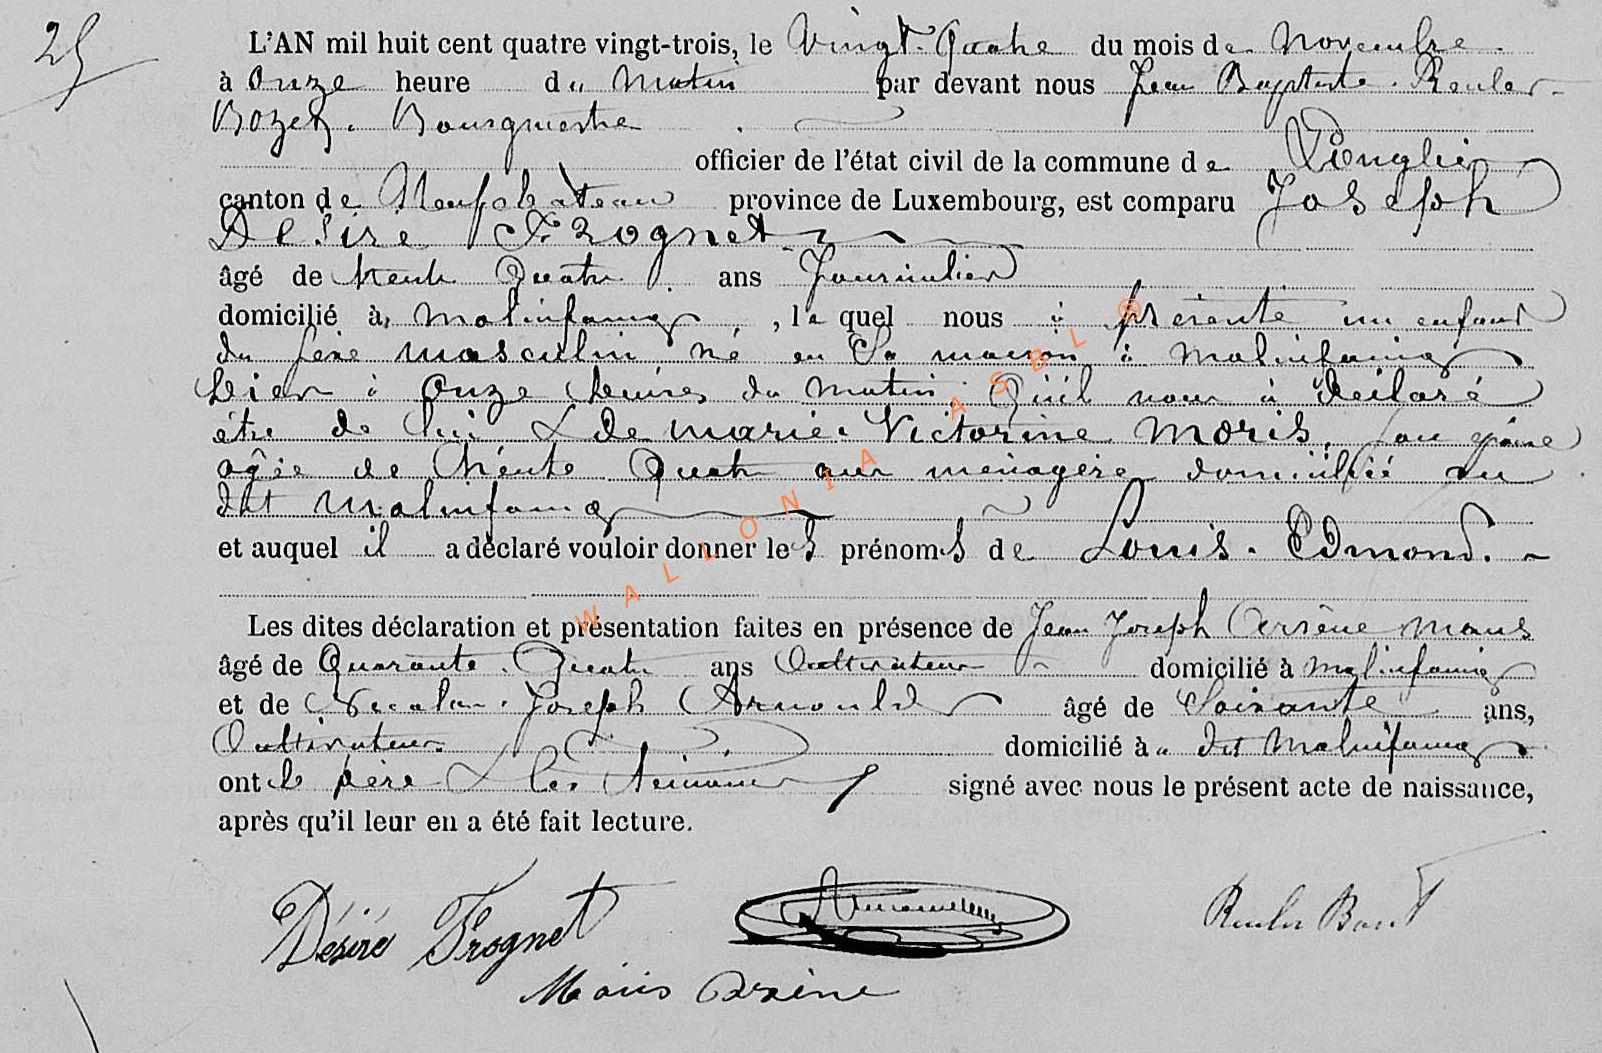 25
L'AN mil huit cent quatre vingt-trois, le Vingt-Quatre du mois de Novembre
à Onze heure du Matin par devant nous Jean Baptiste Reuler
Bozet, Bourgmestre
officier de l'état civil de la commune de Longlier
canton de Neufchâteau province de Luxembourg, est comparu Joseph
Désiré Frognet
âgé de trente Quatre ans Journalier
domicilié à, Molinfaing, le quel nous à présenté un enfant
du sexe masculin né en Sa maison à Molinfaing
hier à Onze heures du matin Qu'il nous à déclaré
être de lui & de marie Victorine Moris, son épouse
agée de trente Quatre ans ménagère domiciliée au
dit Molinfaing
et auquel il a déclaré vouloir donner les prénoms de Louis. Edmond.
Les dites déclaration et présentation faites en présence de Jean Joseph Arsène Maus
âgé de Quarante Quatre ans Cultivateur domicilié à Molinfaing
et de Nicolas Joseph Arnould âgé de Soixante ans,
Cultivateur domicilié à u dit Molinfaing
ont le père & les témoins signé avec nous le présent acte de naissance,
après qu'il leur en a été fait lecture.
Désiré Frognet
Arsène
WALLONIA ASBL ©